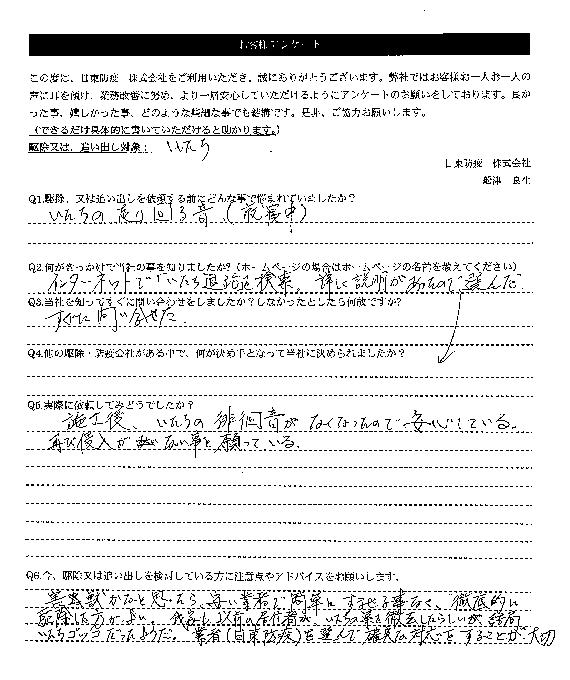 お客様アンケート
この度は、日東防疫 株式会社をご利用いただき、誠にありがとうございます。弊社ではお客様お一人お一人の
声に耳を傾け、業務改善に努め、より一層安心していただけるようにアンケートのお願いをしております。良か
った事、嬉しかった事、どのような些細な事でも結構です。是非、ご協力お願いします。
（できるだけ具体的に書いていただけると助かります。）
駆除又は、追い出し対象： いたち
日東防疫 株式会社
Q1.駆除、又は追い出しを依頼する前にどんな事で悩まれていましたか？
いたちの走り回る音（就寝中）
Q2.何がきっかけで当社の事を知りましたか？（ホームページの場合はホームページの名前を教えてください）
インターネットで「いたち退治」を検索、詳しく説明があったので選んだ
Q3.当社を知ってすぐに問い合わせをしましたか？しなかったとしたら何故ですか？
すぐに問い合せた
Q4.他の駆除・防疫会社がある中で、何が決め手となって当社に決められましたか？
Q5.実際に依頼してみてどうでしたか？
施工後、いたちの徘徊音がなくなったので安心している。
再び侵入が ない事を願っている。
Q6.今、駆除又は追い出しを検討している方に注意点やアドバイスをお願いします。
害獣かなと思ったら、安い業者で簡単にすませる事なく、徹底的に
駆除した方がよい。 以前の居住者が、いたちの巣を撤去したらしいが、結局
いたちごっこだったようだ。業者（日東防疫）を選んで確実な対応をすることが大切